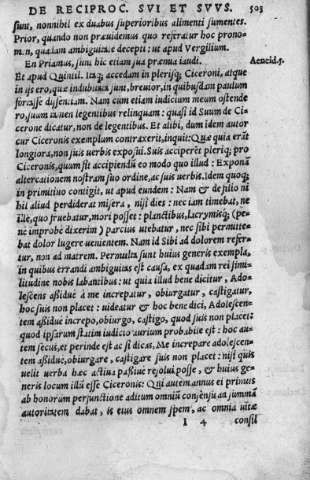 DE RECIPROC. SVI ET SVVS. 503
sunt, nonnihil ex duabus superioribus alimenti sumentes.
Prior, quando non præuidemus quo referatur hoc prono-
m.n, qualem ambiguitate decepti: ut apud Vergilium.
En Priamus, sunt hic etiam sua præmia laudi. Aeneid.5.
Et apud Quintil. Itaq; accedam in plerisq; Ciceroni, atque
in ijs ero, quæ indubitata sunt, breuior, in quibusdam paulum
fortasse dissentiam. Nam cum etiam iudicium meum ostende
ro, suum tamen legentibus relinquam: quasi id suum de Ci-
cerone dicatur, non de legentibus. Et alibi, dum idem autor
cur Ciceronis exemplum contraxerit, inquit: Quæ quia erāt
longiora, non suis uerbis exposui. Suis acciperēt plerisq; pro
Ciceronis, quum sit accipiendū eo modo quo illud: Exponā
altercationem nostram suo ordine, ac suis uerbis. Idem quoq;
in primitiuo contigit, ut apud eundem: Nam & de filio ni
hil aliud perdiderat misera, nisi dies: nec iam timebat, ne
ille, quo fruebatur, mori posset: planctibus, lacrymisq; (pe-
nè improbè dixerim) parcius utebatur, nec sibi permitte-
bat dolor lugere uenientem. Nam id Sibi ad dolorem refer-
tur, non ad matrem. Permulta sunt huius generis exempla,
in quibus errandi ambiguitas est causa, ex quadam rei simi-
litudine nobis labantibus: ut quia illud bene dicitur, Ado-
lescens assiduè à me increpatur, obiurgatur, castigatur,
hoc suis non placet: uideatur & hoc bene dici, Adolescen-
tem assiduè increpo, obiurgo, castigo, quod suis non placet:
quod ipsarum statim iudicio aurium probabile est: hoc au-
tem secus, et perinde est ac si dicas, Me increpare adolescen-
tem assiduè, obiurgare, castigare suis non placet: nisi quis
uelit uerba hæc actiua passiuè resolui posse, & huius ge-
neris locum illū esse Ciceronis: Qui autem annus ei primus
ab honorum perfunctione aditum omniū consensu ad summā
autoritatem dabat, is eius omnem spem, ac omnia uitæ
I 4 consil